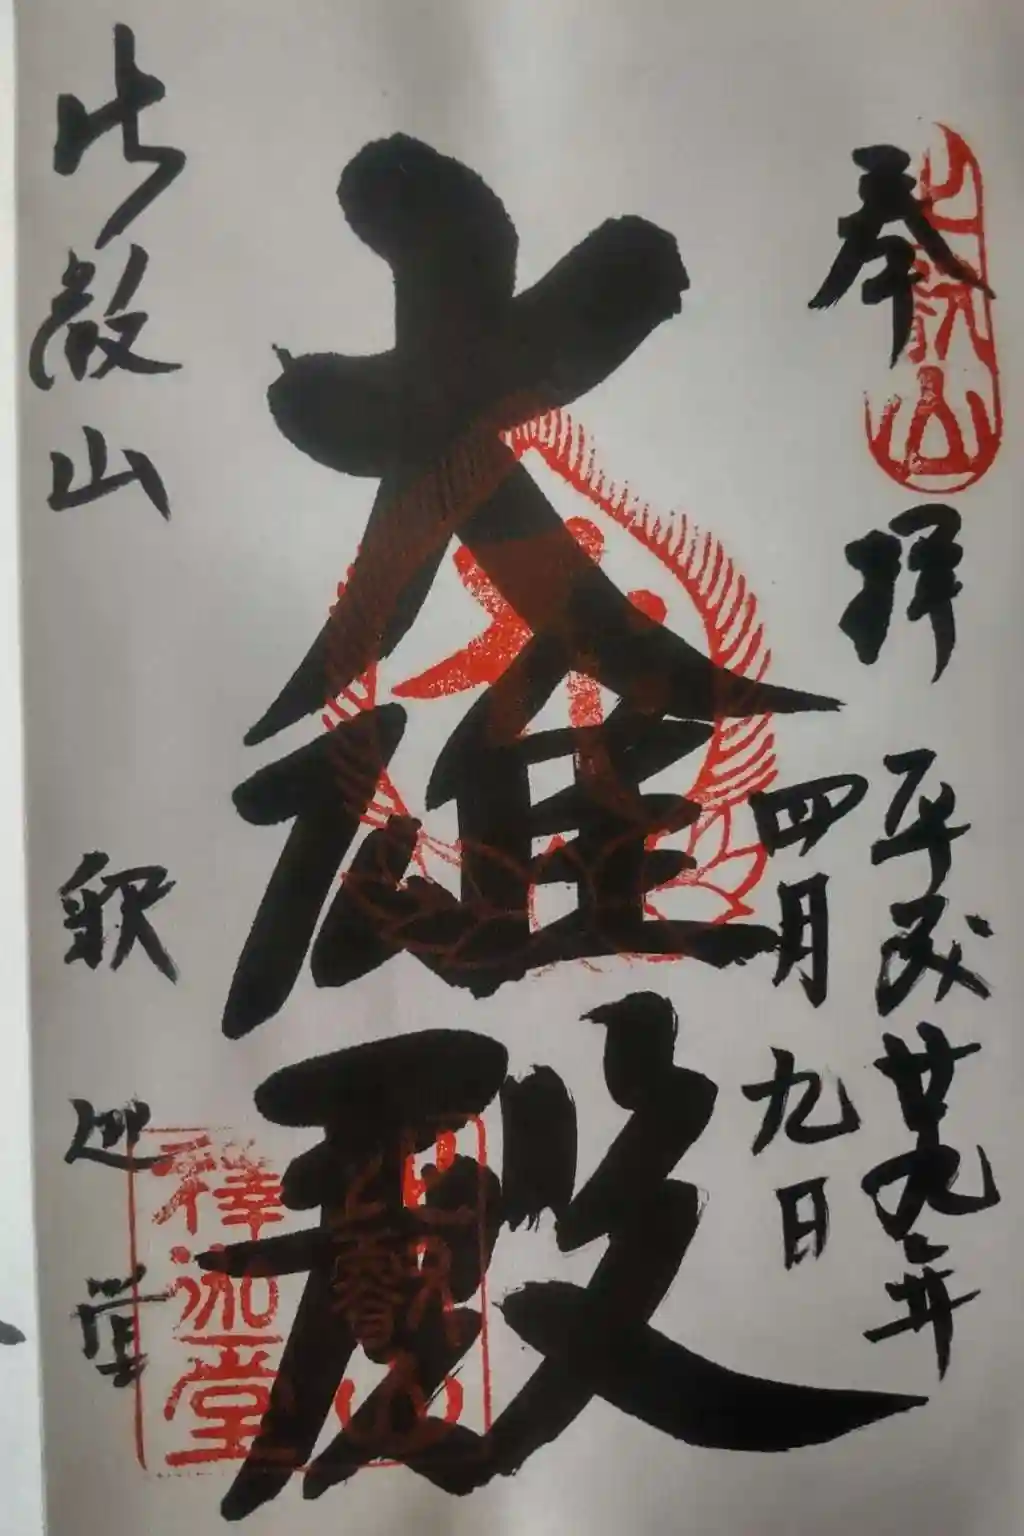 奉拝
平成廿九年
四月九日
大雄殿
比叡山
釈迦堂
比叡山
比叡山
釋迦堂